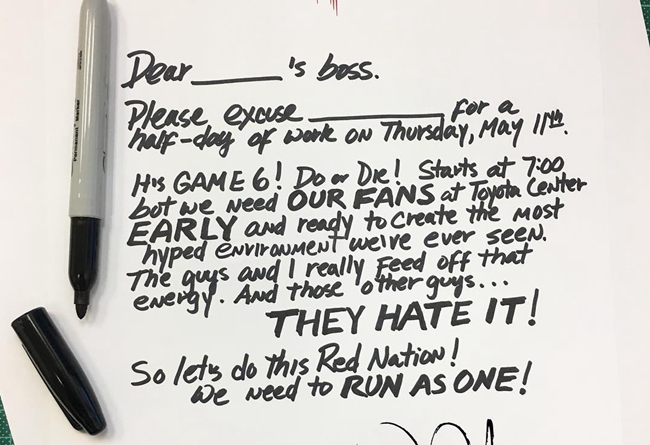 Dear ______'s boss.
Please excuse __________ for a
half-day of work on Thursday, May 11th.
It's GAME 6! Do or Die! Starts at 7:00
but we need OUR FANS at Toyota Center
EARLY and ready to create the most
hyped environment we've ever seen.
The guys and I really feed off that
energy. And those other guys...
THEY HATE IT!
So let's do this Red Nation!
We need to RUN AS ONE!
Permanent Marker